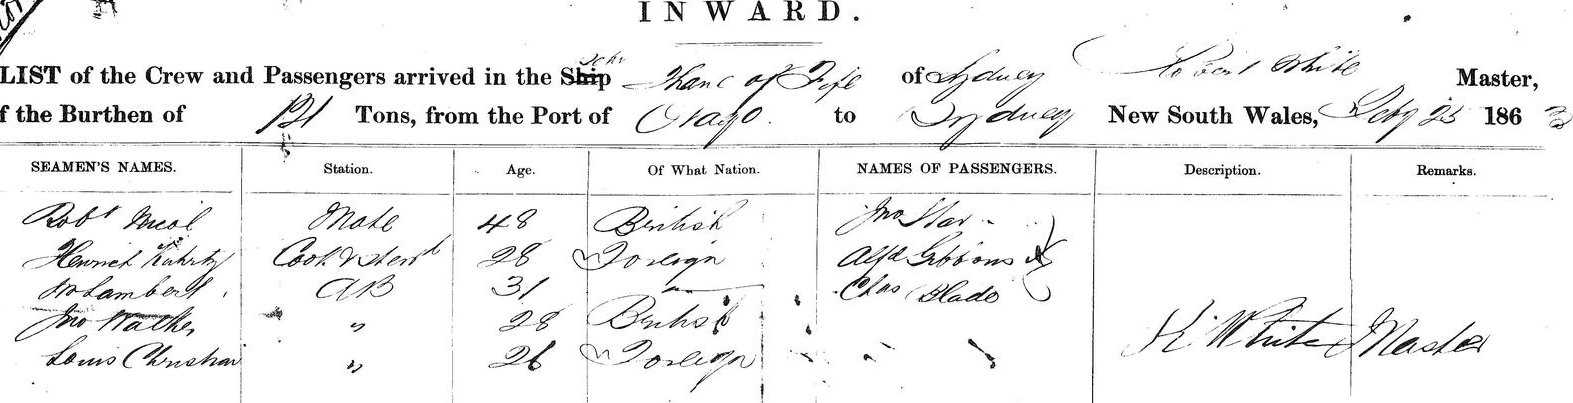 INWARD.
LIST of the Crew and Passengers arrived in the Ship Schr Thane of Fife of Sydney Robert White Master,
f the Burthen of 121 Tons, from the Port of Otago. to Sydney New South Wales, Feby 25 1863
SEAMEN'S NAMES. Station. Age. Of What Nation. NAMES OF PASSENGERS. Description. Remarks.
Robt Nicol Mate 48 British Jno Star
Henrich 28 Foreign Alfd Gibbons
Wm Lambert AB 31 " Chas Slade
Jno Walker " 28 British
Louis Christian " 26 Foreign
R White Master